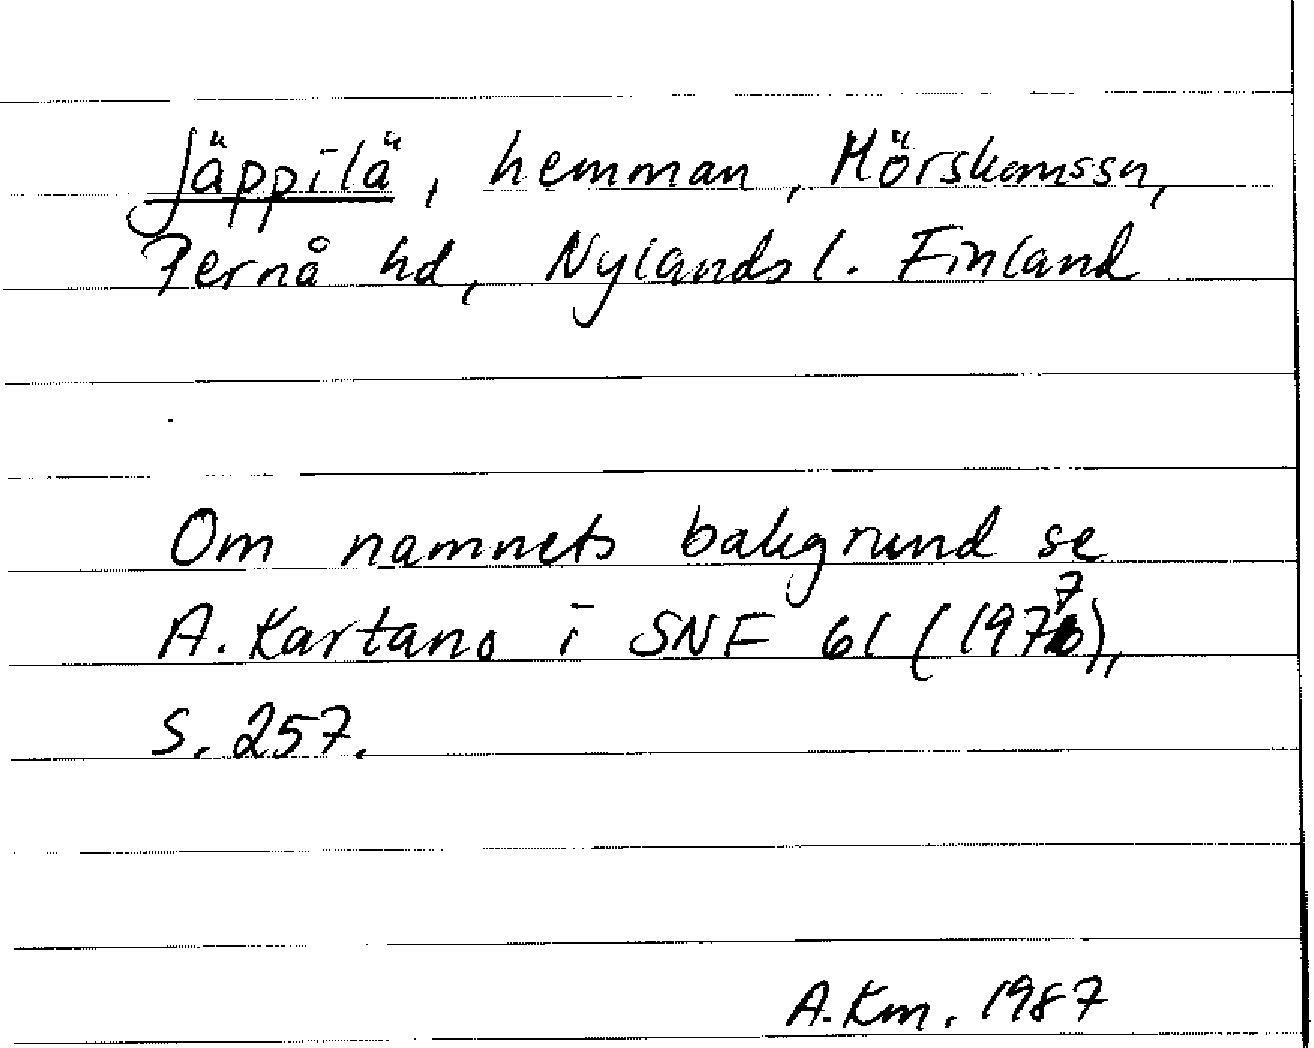 Jäppilä, hemman, Mörskomssn,
Pernå hd, Nylands l. Finland
Om namnets bakgrund se
A. Kartano i SNF 61 (1977),
S. 257.
A.Km. 1987